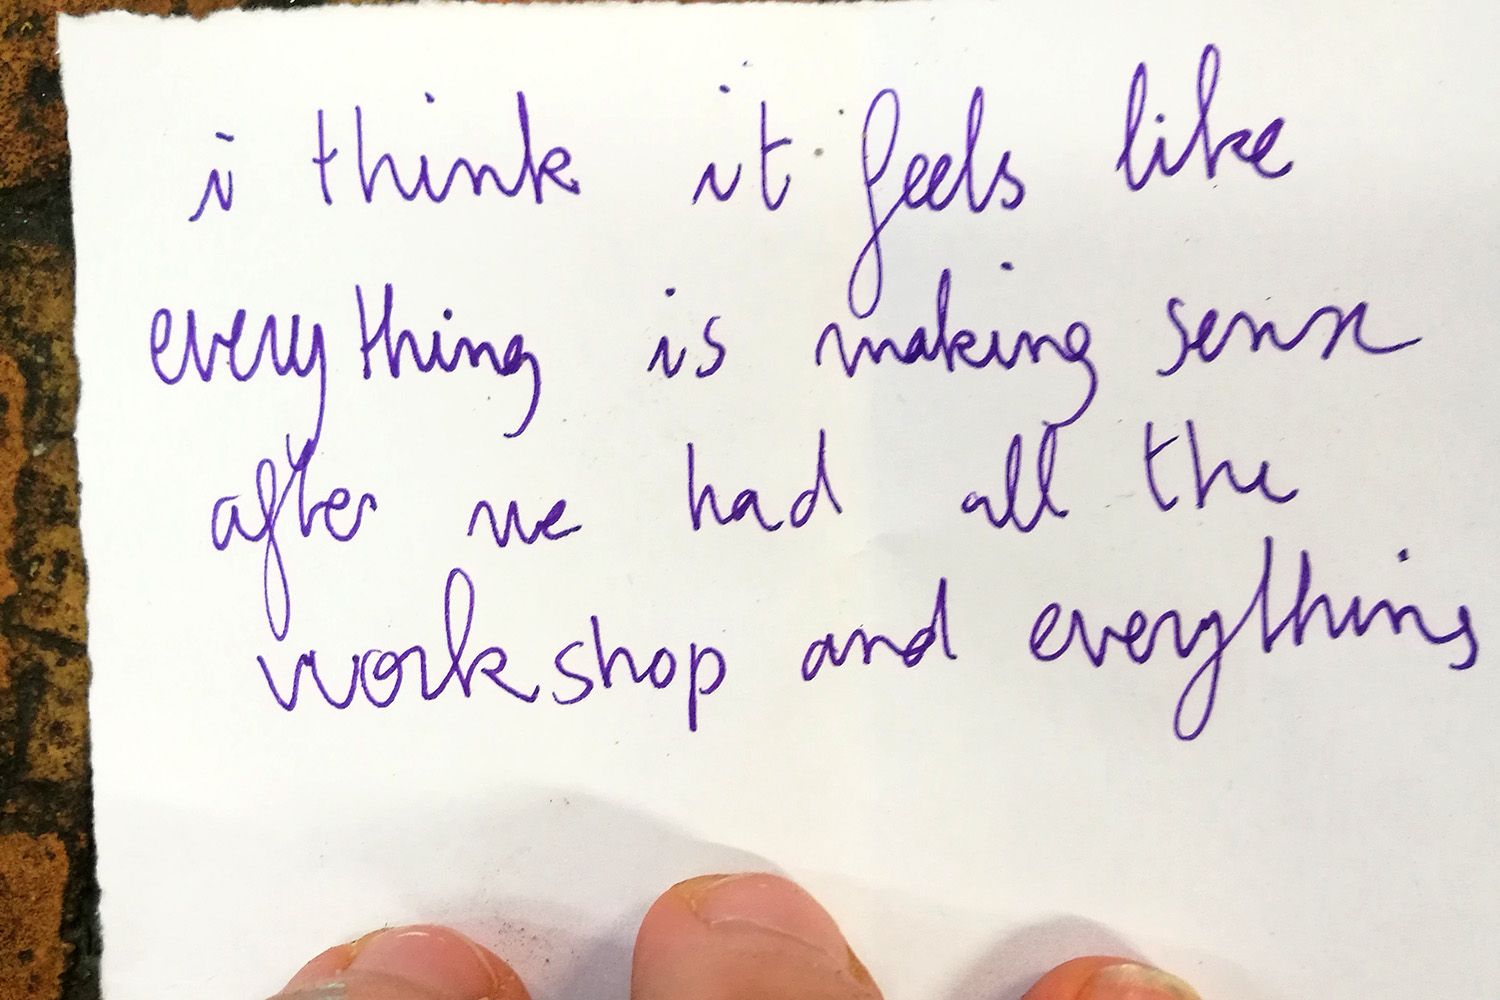 i think it feels like
everything is making sense
after we had all the
workshop and everything